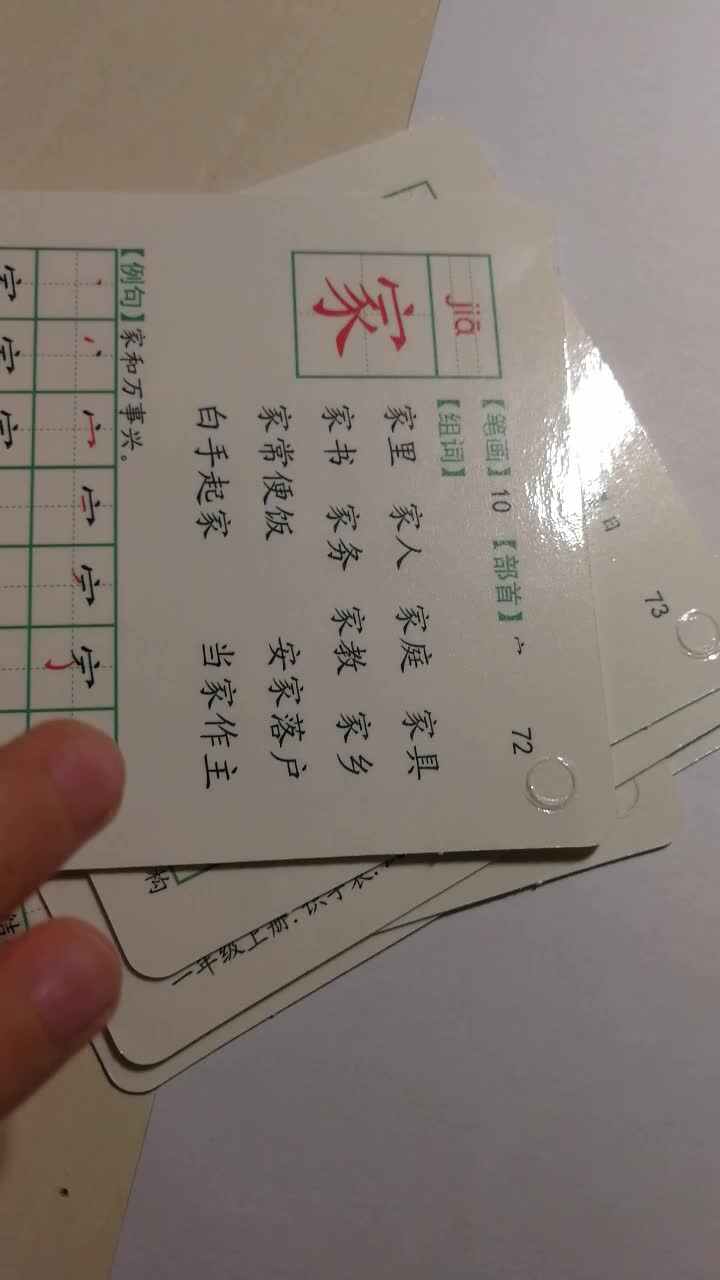 jiā
家
【笔画】10 【部首】宀
72
【组词】
家里 家人 家庭 家具
家书 家务 家教 家乡
家常便饭 安家落户
白手起家 当家作主
【例句】家和万事兴。
73
日
构